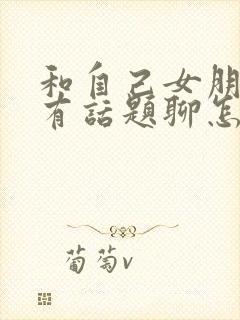 和自己女朋
有話題聊怎
葡萄v